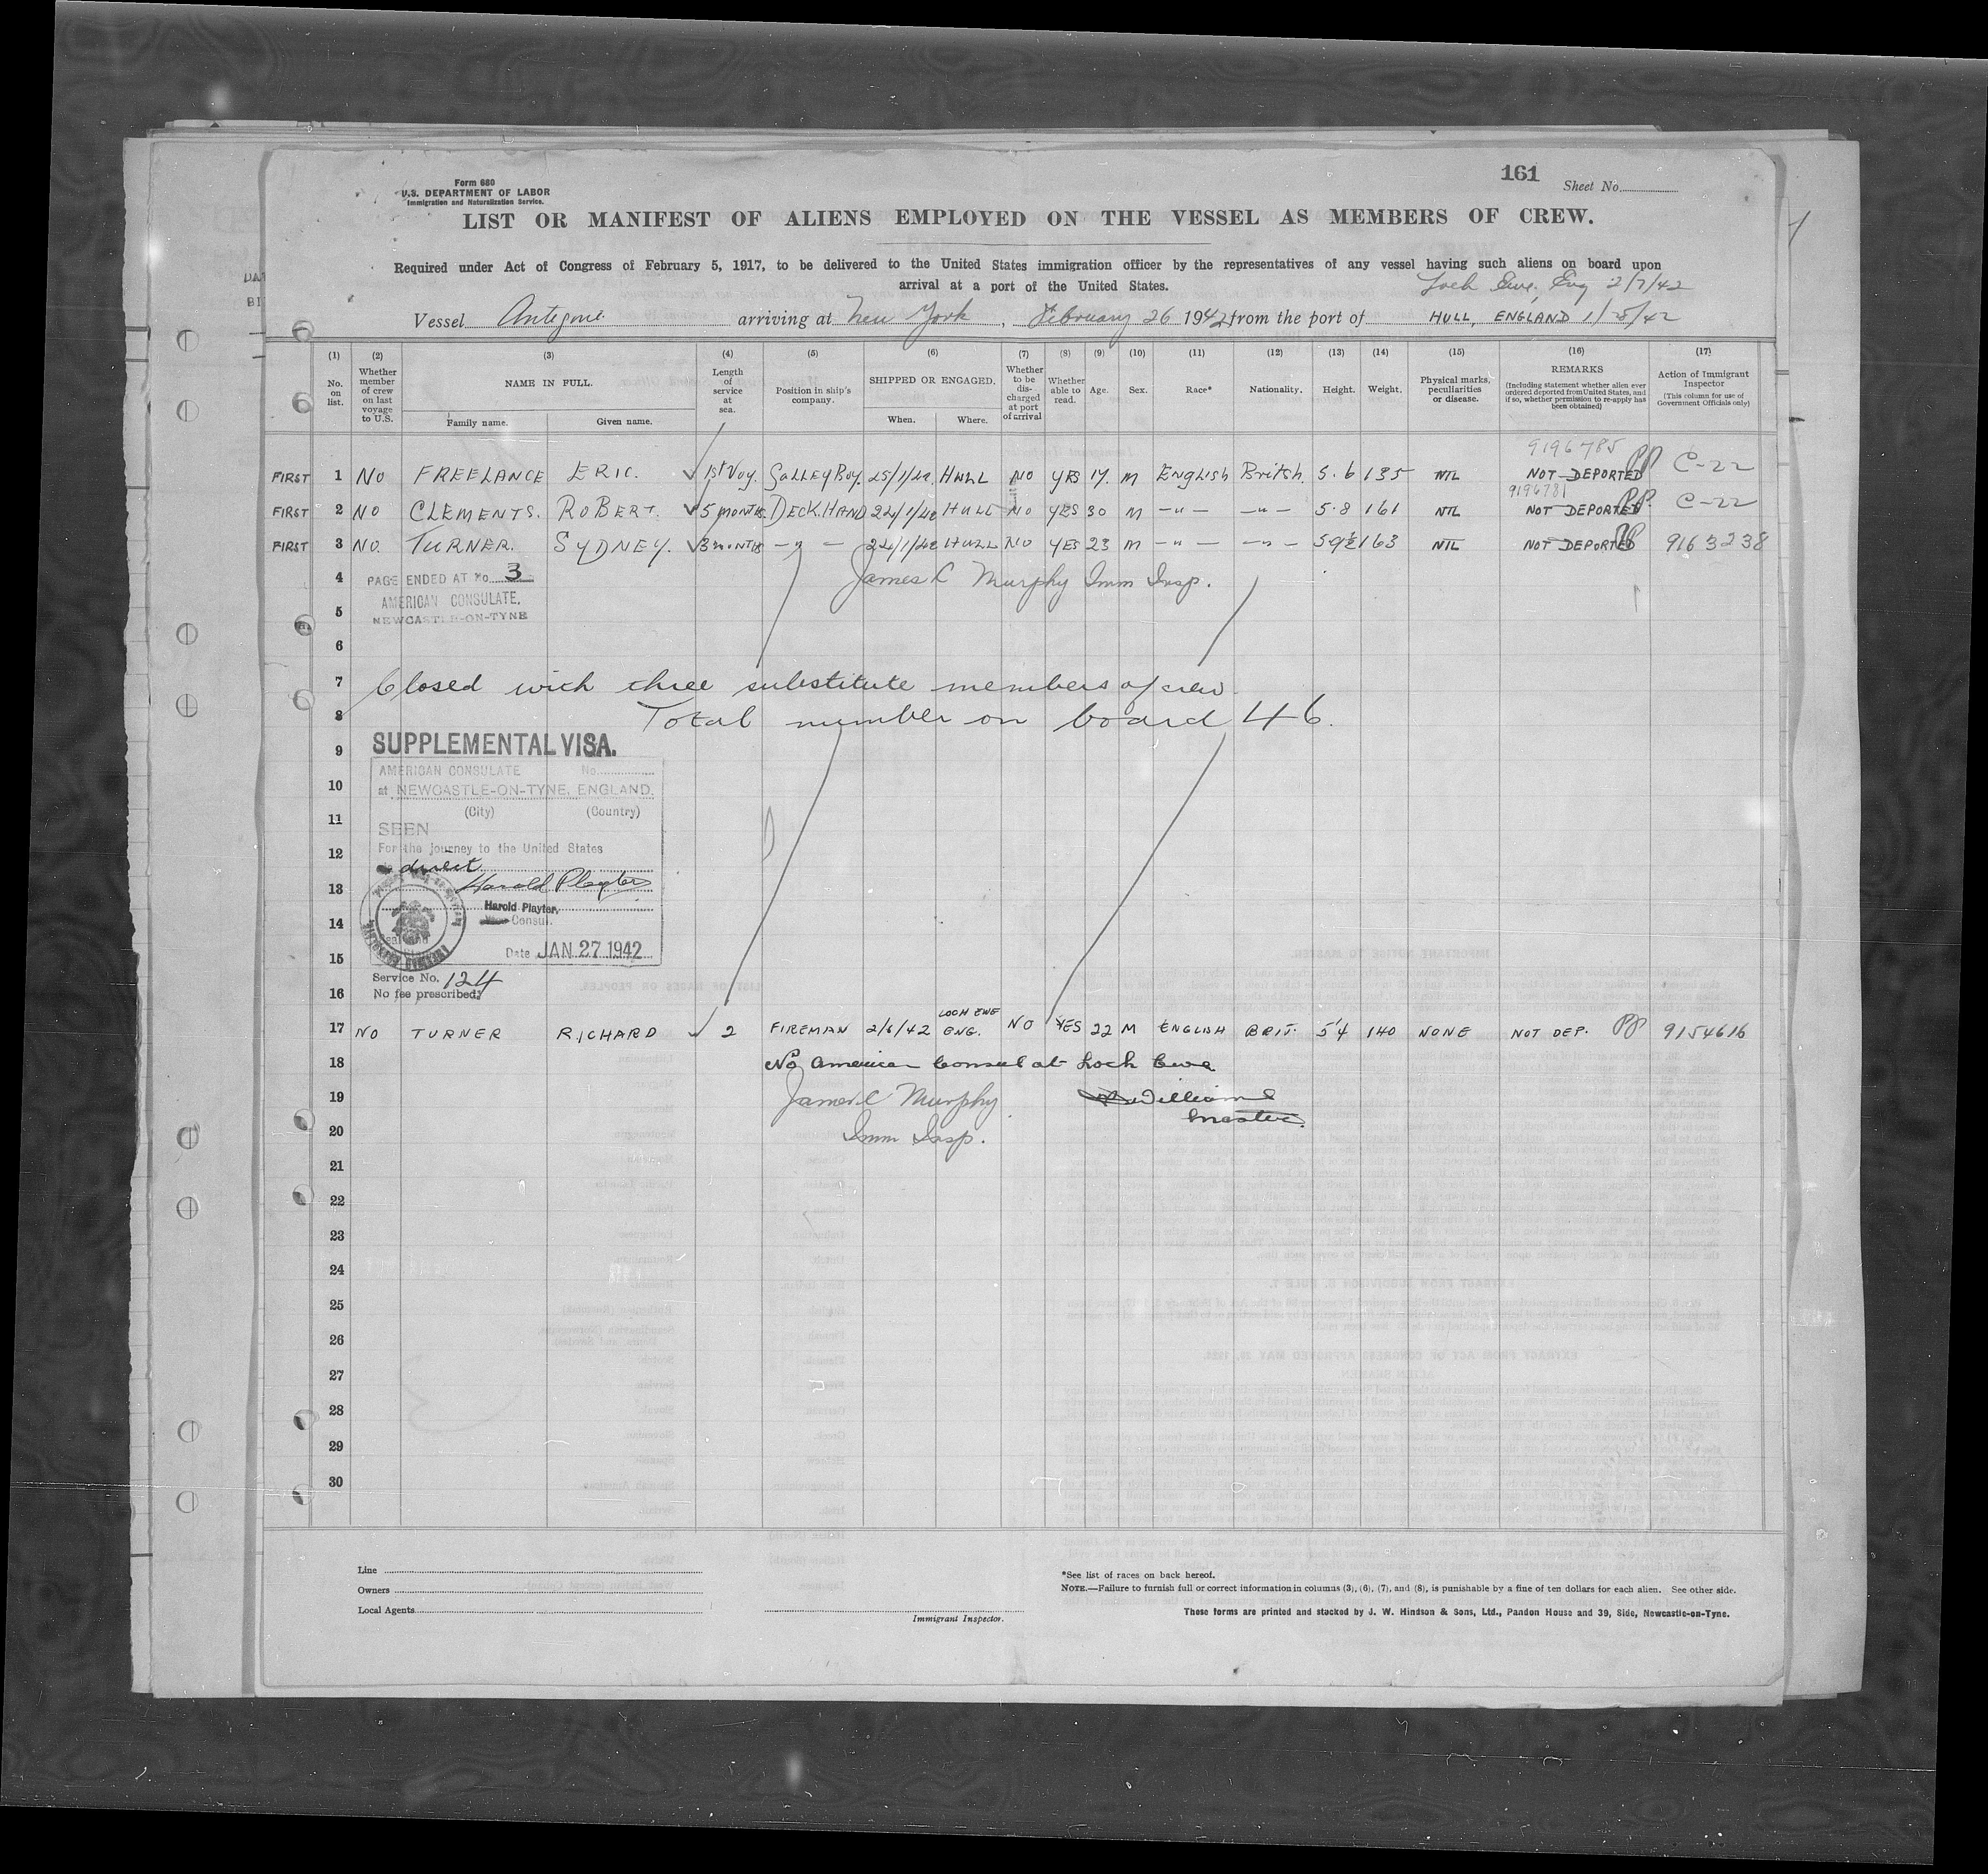 161
Sheet No.
Form 680
U.S. DEPARTMENT OF LABOR
Immigration and Naturalization Service.
LIST OR MANIFEST OF ALIENS EMPLOYED ON THE VESSEL AS MEMBERS OF CREW.
Required under Act of Congress of February 5, 1917, to be delivered to the United States immigration officer by the representatives of any vessel having such aliens on board upon
arrival at a port of the United States.
Loch Ewe, Eng 2/7/42
Vessel Antigone arriving at New York, February 26 1942, from the port of HULL, ENGLAND 1/28/42
(1) (2) (3) (4) (5) (6) (7) (8) (9) (10) (11) (12) (13) (14) (15) (16) (17)
No. on list. Whether member of crew on last voyage to U.S. NAME IN FULL. Family name. Given name. Length of service at sea. Position in ship's company. SHIPPED OR ENGAGED. When. Where. Whether to be discharged at port of arrival Whether able to read. Age. Sex. Race* Nationality. Height. Weight. Physical marks, peculiarities or disease. REMARKS (Including statement whether alien ever ordered deported from United States, and if so, whether permission to re-apply has been obtained) Action of Immigrant Inspector (This column for use of Government Officials only)
9196785
FIRST 1 NO FREELANCE ERIC. 1st Voy. Galley Boy. 25/1/42. HULL NO YES 17. M English British. 5.6 135 NIL NOT DEPORTED PP C-22
9196781
FIRST 2 NO CLEMENTS. ROBERT. 5 MONTHS. DECK.HAND 22/1/42 HULL NO YES 30 M -"- -"- 5.8 161 NIL NOT DEPORTED PP. C-22
FIRST 3 NO. TURNER. SYDNEY. 3 MONTHS -"- 24/1/42 HULL NO YES 23 M -"- -"- 5 9½ 163 NIL NOT DEPORTED PP 9163238
4 PAGE ENDED AT No. 3 James C Murphy Imm Insp.
AMERICAN CONSULATE,
5 NEWCASTLE-ON-TYNE
6
7 Closed with three substitute members of crew.
8 Total number on board 46.
SUPPLEMENTAL VISA.
9
AMERICAN CONSULATE No.
10 at NEWCASTLE-ON-TYNE, ENGLAND.
(City) (Country)
11
SEEN
12 For the journey to the United States
direct
13 Harold Playter
Harold Playter,
14 Consul.
15 Date JAN 27 1942
Service No. 124
16 No fee prescribed.
LOCH EWE
17 NO TURNER RICHARD 2 FIREMAN 2/6/42 ENG. NO YES 22 M ENGLISH BRIT. 5'4 140 NONE NOT DEP. PP 9154616
18 No American Consul at Loch Ewe
19 James C Murphy Williams
Master.
20 Imm Insp.
21
22
23
24
25
26
27
28
29
30
Line
Owners
Local Agents
Immigrant Inspector.
*See list of races on back hereof.
NOTE.—Failure to furnish full or correct information in columns (3), (6), (7), and (8), is punishable by a fine of ten dollars for each alien. See other side.
These forms are printed and stocked by J. W. Hindson & Sons, Ltd., Pandon House and 39, Side, Newcastle-on-Tyne.